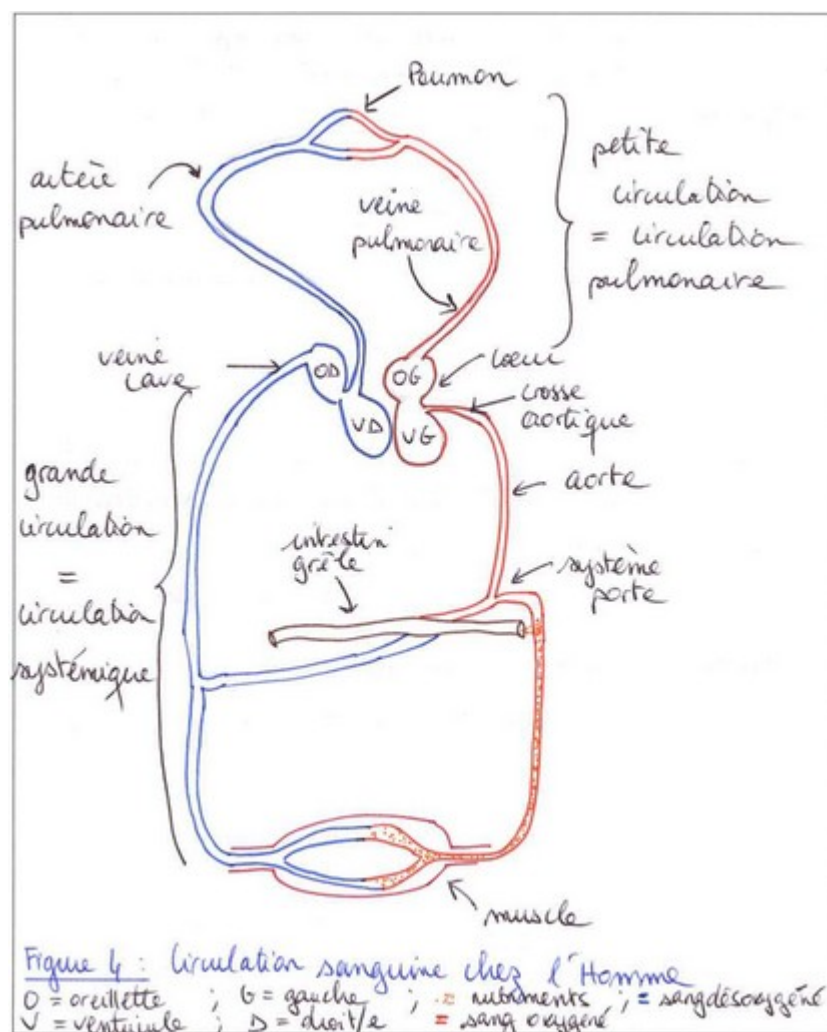 Poumon
artère
pulmonaire
petite
circulation
= circulation
pulmonaire
veine
pulmonaire
veine
cave
OD
OG
VD
VG
coeur
crosse
aortique
aorte
grande
circulation
=
circulation
systémique
intestin
grêle
système
porte
muscle
Figure 4 : Circulation sanguine chez l'Homme
O = oreillette ; G = gauche ; nutriments ; = sang désoxygéné
V = ventricule ; D = droit/e = sang oxygéné